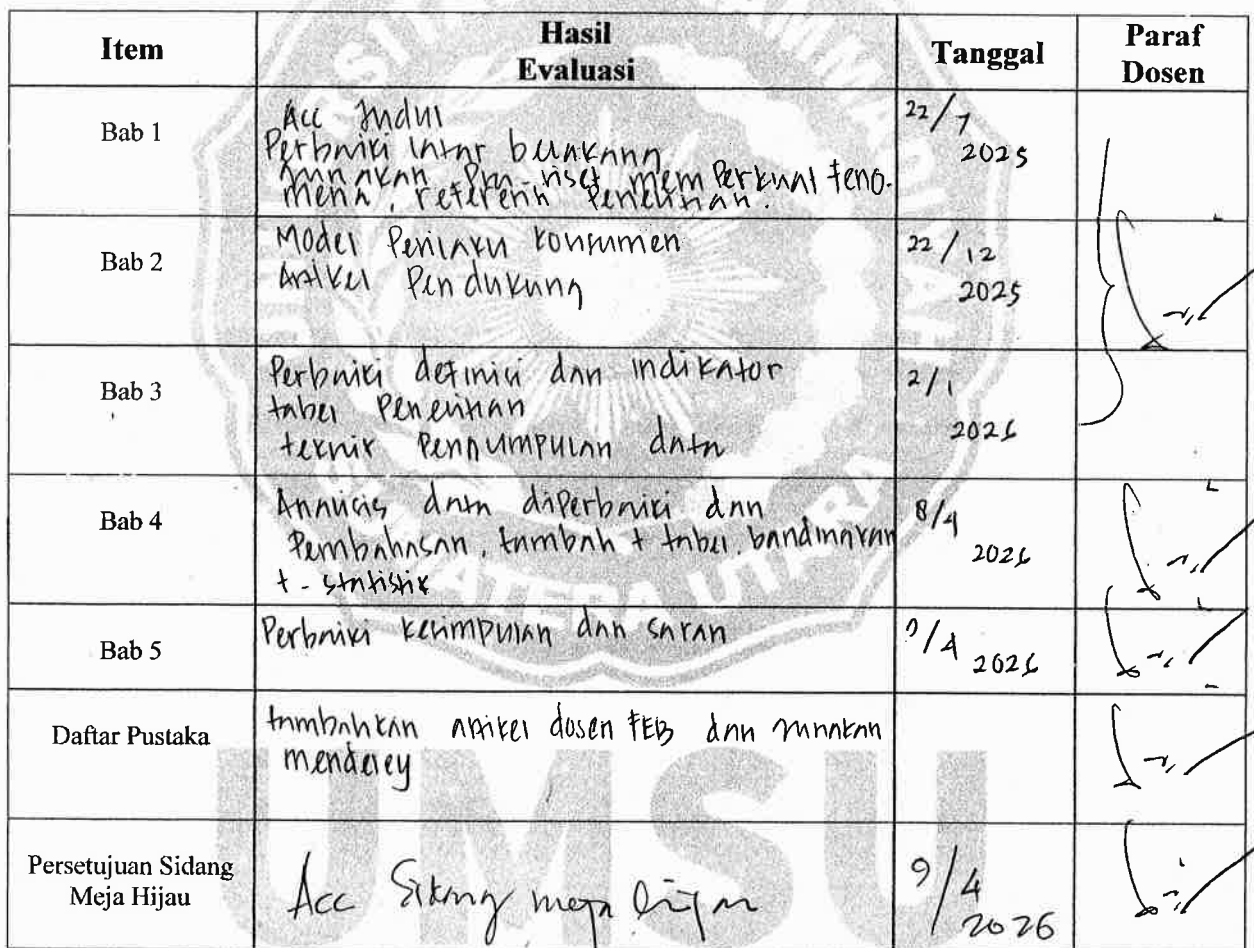 Item
Hasil
Evaluasi
Tanggal
Paraf
Dosen
Bab 1
Acc Judul
Perbaiki latar belakang
gunakan Pra-riset memperkuat feno-
mena, referensi Penelitian.
22/7
2025
Bab 2
Model Perilaku Konsumen
Artikel Pendukung
22/12
2025
Bab 3
Perbaiki definisi dan indikator
tabel Penelitian
teknik Pengumpulan data
2/1
2026
Bab 4
Analisis data diperbaiki dan
Pembahasan, tambah t tabel, bandingkan
t-statistik
8/4
2026
Bab 5
Perbaiki kesimpulan dan saran
9/4
2026
Daftar Pustaka
tambahkan artikel dosen FEB dan gunakan
mendeley
Persetujuan Sidang
Meja Hijau
Acc Sidang meja hijau
9/4
2026
SUMATERA UTARA
UMSU